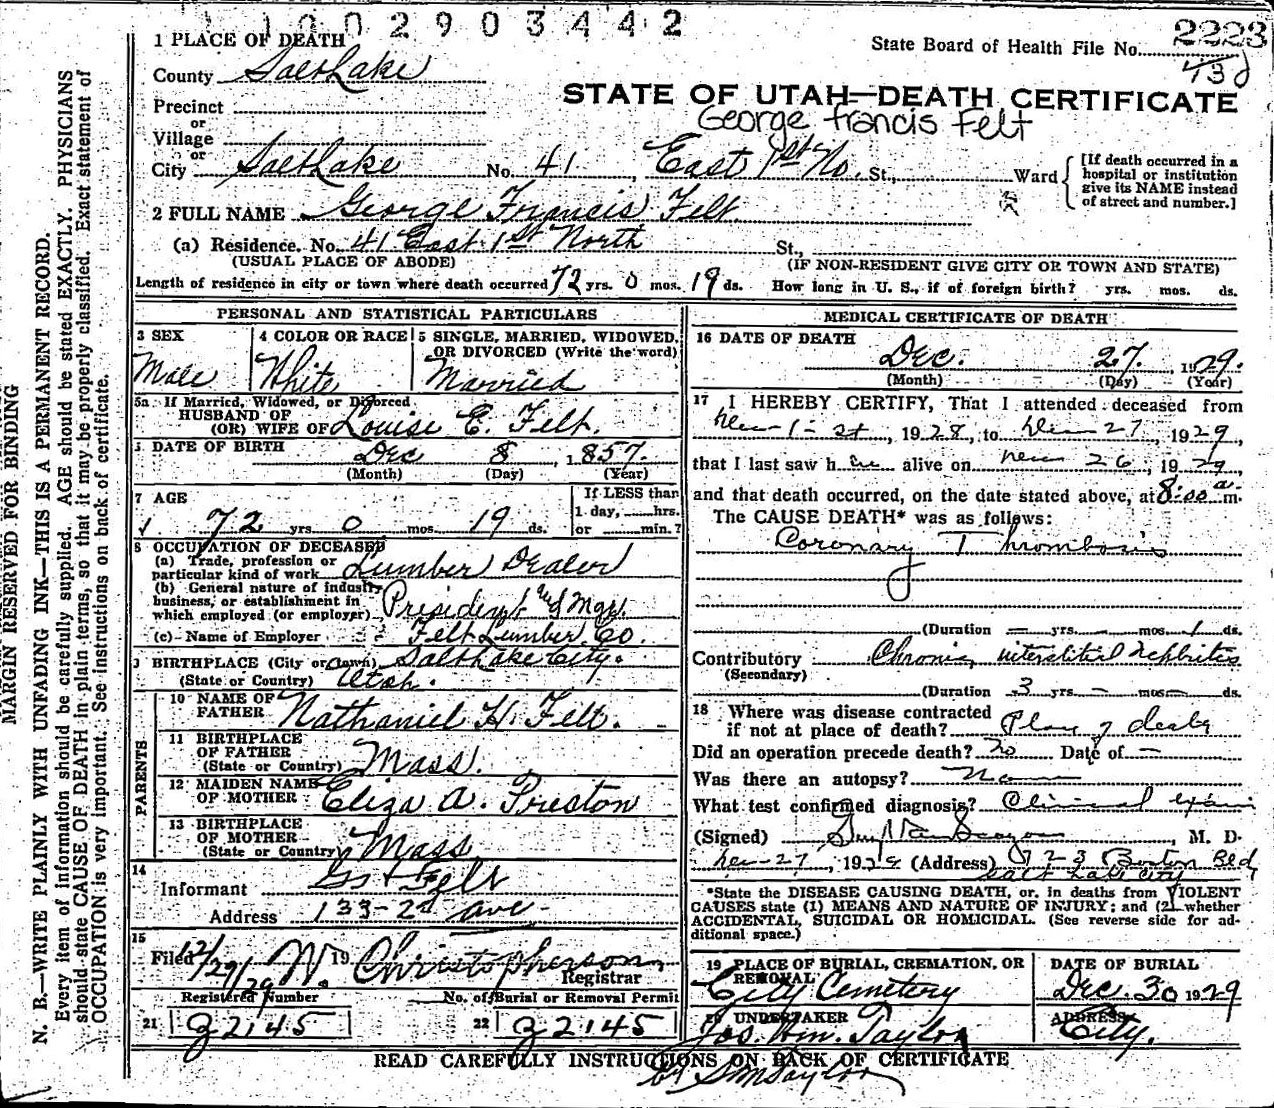 1002903442
2223
State Board of Health File No.
1 PLACE OF DEATH
County Salt Lake
STATE OF UTAH—DEATH CERTIFICATE
George Francis Felt
Precinct
or
Village
or
City Salt Lake No. 41, East 1st No. St., Ward
[If death occurred in a hospital or institution give its NAME instead of street and number.]
2 FULL NAME George Francis Felt
(a) Residence. No. 41 East 1st North St.,
(USUAL PLACE OF ABODE) (IF NON-RESIDENT GIVE CITY OR TOWN AND STATE)
Length of residence in city or town where death occurred 72 yrs. 0 mos. 19 ds. How long in U. S., if of foreign birth? yrs. mos. ds.
PERSONAL AND STATISTICAL PARTICULARS
3 SEX
Male
4 COLOR OR RACE
White
5 SINGLE, MARRIED, WIDOWED, OR DIVORCED (Write the word)
Married
5a If Married, Widowed, or Divorced
HUSBAND OF
(OR) WIFE OF Louise E. Felt.
6 DATE OF BIRTH
Dec 8, 1857.
(Month) (Day) (Year)
7 AGE
72 yrs 0 mos. 19 ds.
If LESS than
1 day, hrs.
or min.?
8 OCCUPATION OF DECEASED
(a) Trade, profession or
particular kind of work Lumber Dealer
(b) General nature of industry
business, or establishment in
which employed (or employer) President and Mgr.
(c) Name of Employer Felt Lumber Co.
9 BIRTHPLACE (City or town) Salt Lake City.
(State or Country) Utah.
PARENTS
10 NAME OF
FATHER Nathaniel H. Felt.
11 BIRTHPLACE
OF FATHER
(State or Country) Mass.
12 MAIDEN NAME
OF MOTHER Eliza A. Preston
13 BIRTHPLACE
OF MOTHER
(State or Country) Mass
14
Informant Felt
Address 133-2d Ave.
15
Filed 12/29/29 19 W. Christopherson
Registrar
Registered Number No. of Burial or Removal Permit
21 G2145 22 G2145
MEDICAL CERTIFICATE OF DEATH
16 DATE OF DEATH
Dec. 27, 1929.
(Month) (Day) (Year)
17 I HEREBY CERTIFY, That I attended deceased from
1-st, 1928, to Dec 27, 1929,
that I last saw h alive on Dec 26, 1929,
and that death occurred, on the date stated above, at 8:00 a m.
The CAUSE DEATH* was as follows:
Coronary Thrombosis
(Duration — yrs. — mos. 1 ds.
Contributory Chronic interstitial Nephritis
(Secondary)
(Duration 3 yrs — mos — ds.
18 Where was disease contracted
if not at place of death? Place of death
Did an operation precede death? No Date of —
Was there an autopsy?
What test confirmed diagnosis? Clinical exam
(Signed) , M. D.
Dec-27, 1929 (Address) Boston Bld
Salt Lake City
*State the DISEASE CAUSING DEATH, or, in deaths from VIOLENT
CAUSES state (1) MEANS AND NATURE OF INJURY; and (2) whether
ACCIDENTAL, SUICIDAL OR HOMICIDAL. (See reverse side for ad-
ditional space.)
19 PLACE OF BURIAL, CREMATION, OR
REMOVAL
City Cemetery
DATE OF BURIAL
Dec. 30 1929
20 UNDERTAKER
Jos. Wm. Taylor
ADDRESS
City.
READ CAREFULLY INSTRUCTIONS ON BACK OF CERTIFICATE
by Taylor
MARGIN RESERVED FOR BINDING
N. B.—WRITE PLAINLY WITH UNFADING INK—THIS IS A PERMANENT RECORD.
Every item of information should be carefully supplied. AGE should be stated EXACTLY. PHYSICIANS
should state CAUSE OF DEATH in plain terms, so that it may be properly classified. Exact statement of
OCCUPATION is very important. See instructions on back of certificate.